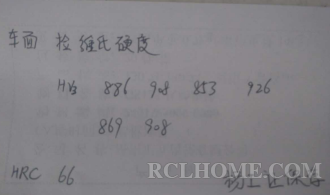 车面 检 维氏硬度
HV3 886 908 853 926
869 908
HRC 66
RCLHOME.COM